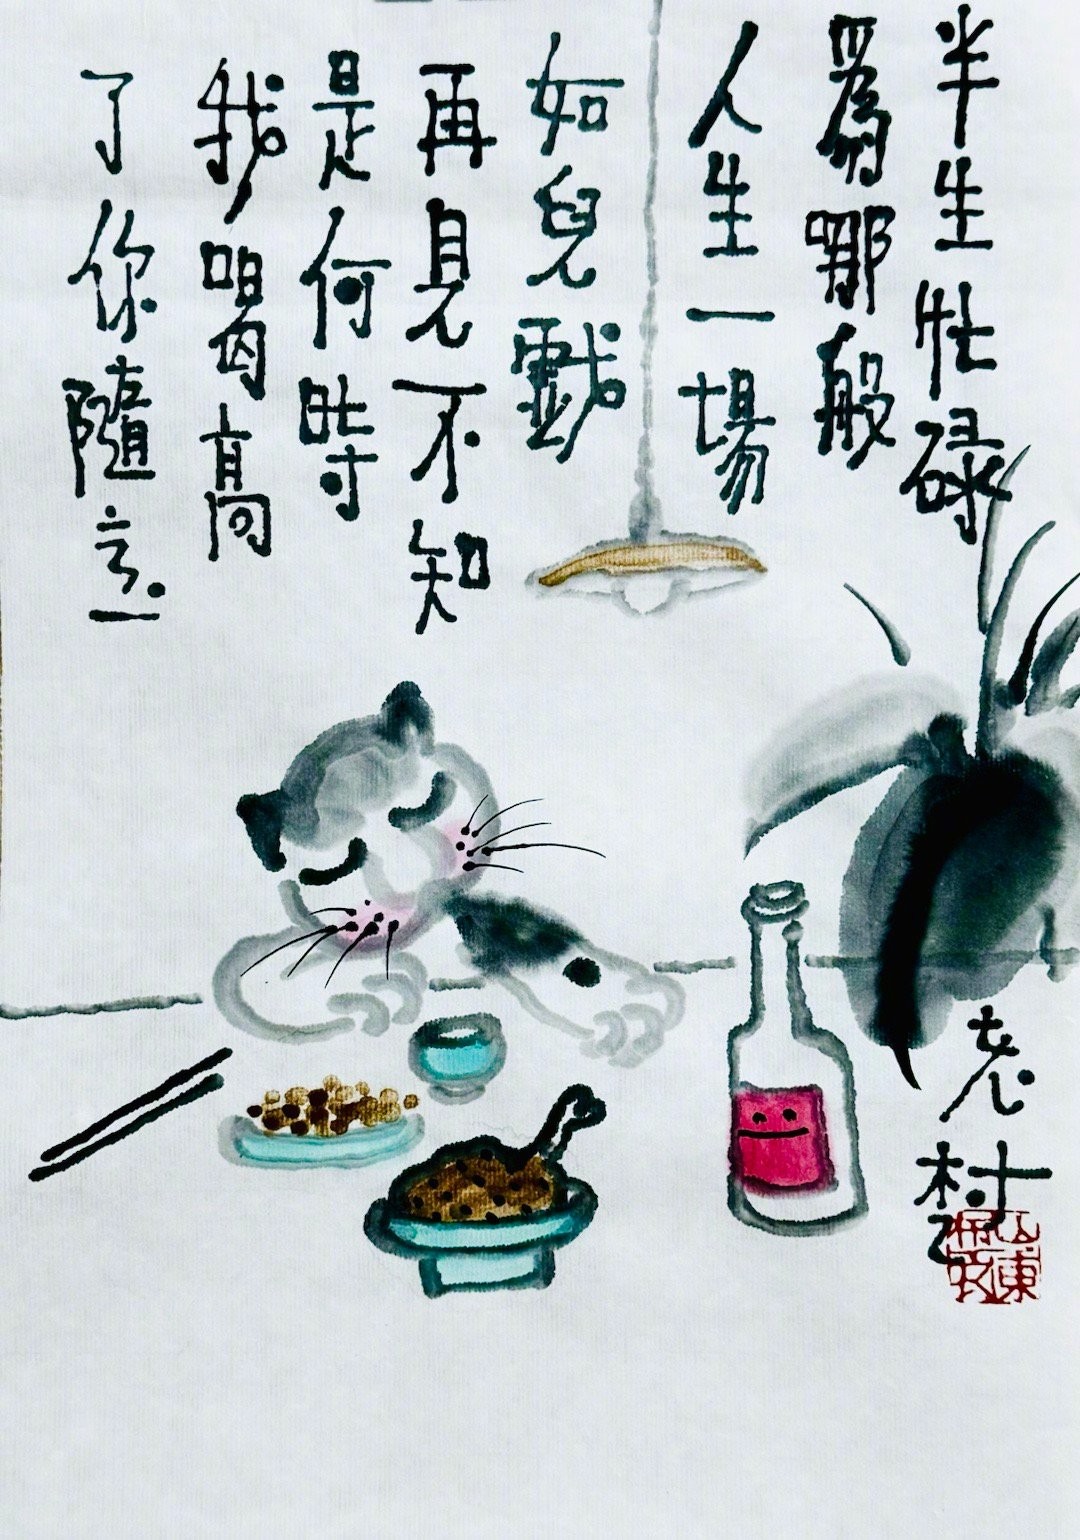 半生忙碌
為哪般
人生一場
如兒戲
再見不知
是何時
我喝高
了你隨意
老村
山東